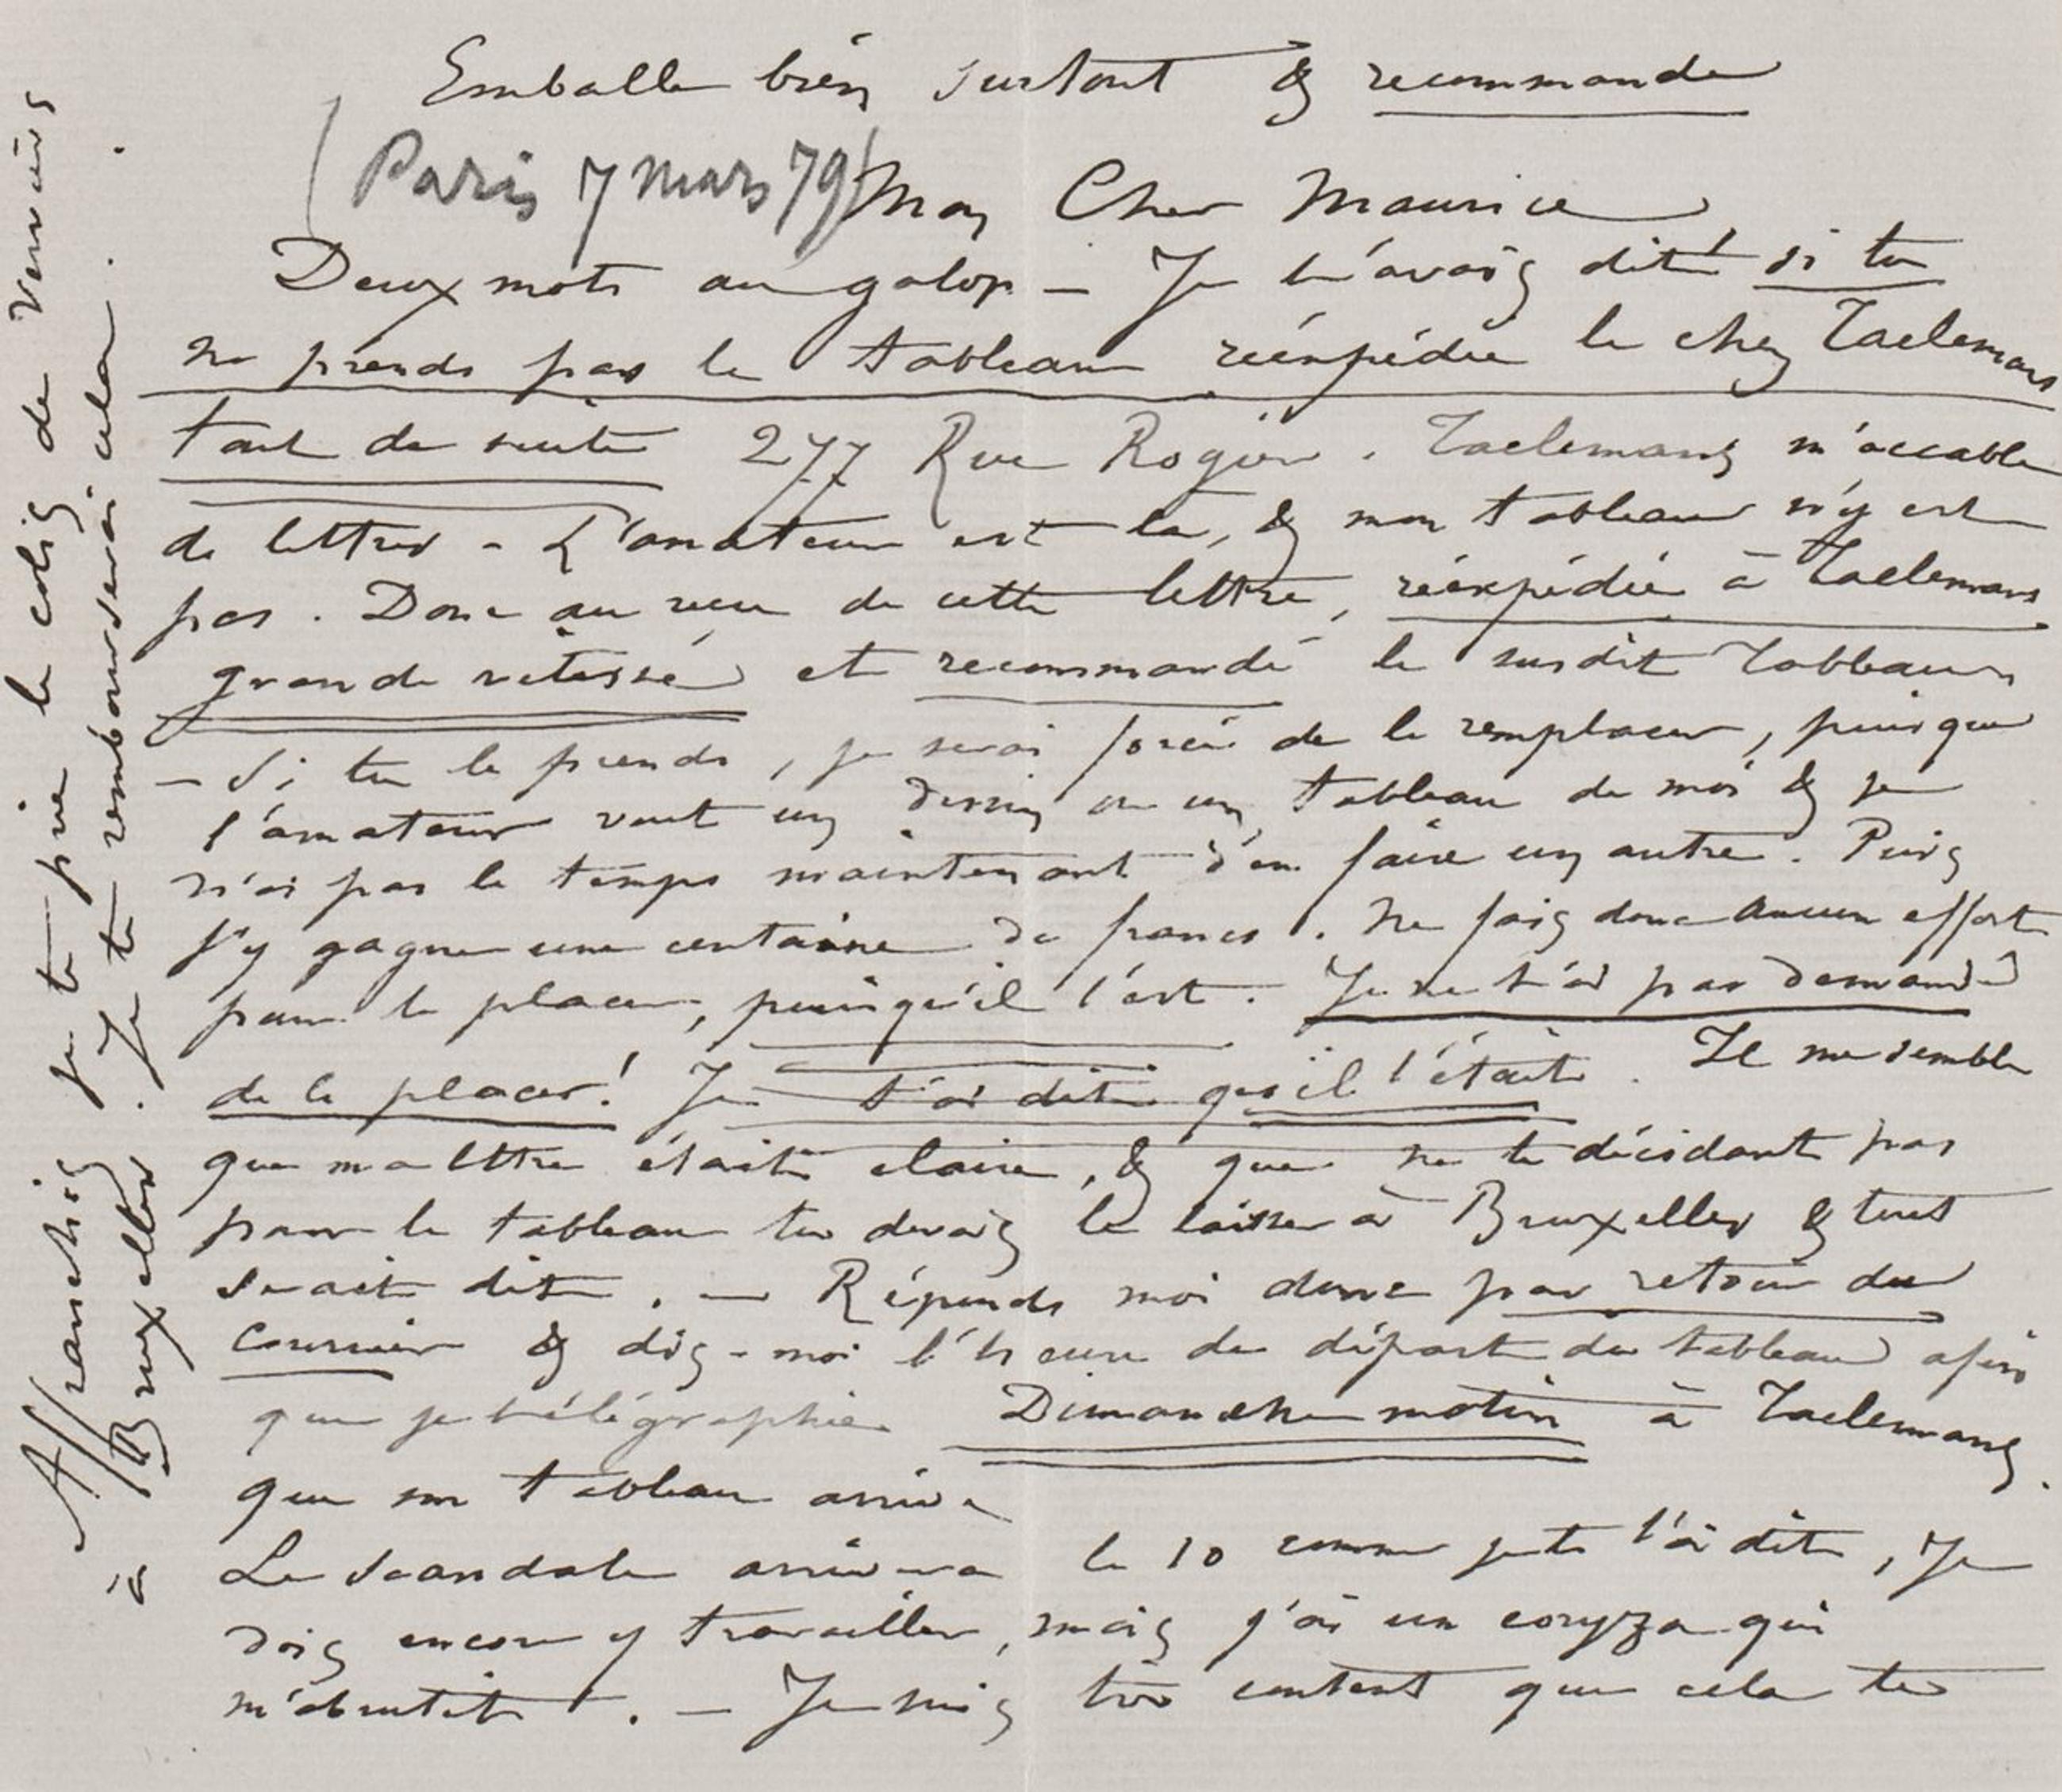 Emballe bien surtout & recommande
(Paris 7 mars 79) Mon Cher Maurice
Deux mots au galop – Je t'avais dit si tu
ne prends pas le tableau réexpédie le chez Taelemans
tout de suite 277 Rue Rogier. Taelemans m'accable
de lettres – L'amateur est là, & mon tableau n'y est
pas. Donc au reçu de cette lettre, réexpédie à Taelemans
grande vitesse et recommandé le susdit Tableau
– Si tu le prends, je serai forcé de le remplacer, puisque
l'amateur veut un dessin ou un tableau de moi & je
n'ai pas le temps maintenant d'en faire un autre. Puis
j'y gagne une centaine de francs. Ne fais donc aucun effort
pour le placer, puisqu'il l'est. Je ne t'ai pas demandé
de le placer! Je t'ai dit qu'il l'était. Il me semble
que ma lettre était claire, & que ne te décidant pas
pour le tableau tu devais le laisser à Bruxelles & tout
serait dit. – Réponds moi donc par retour du
courrier & dis-moi l'heure du départ du tableau afin
que je télégraphie Dimanche matin à Taelemans
que son tableau arrive
Le Scandale arrivera le 10 comme je te l'ai dit, Je
dois encore y travailler, mais j'ai un coryza qui
m'abrutit. – Je suis très content que cela te
Affranchis je te prie le colis de Verviers
à Bruxelles. Je te rembourserai cela.